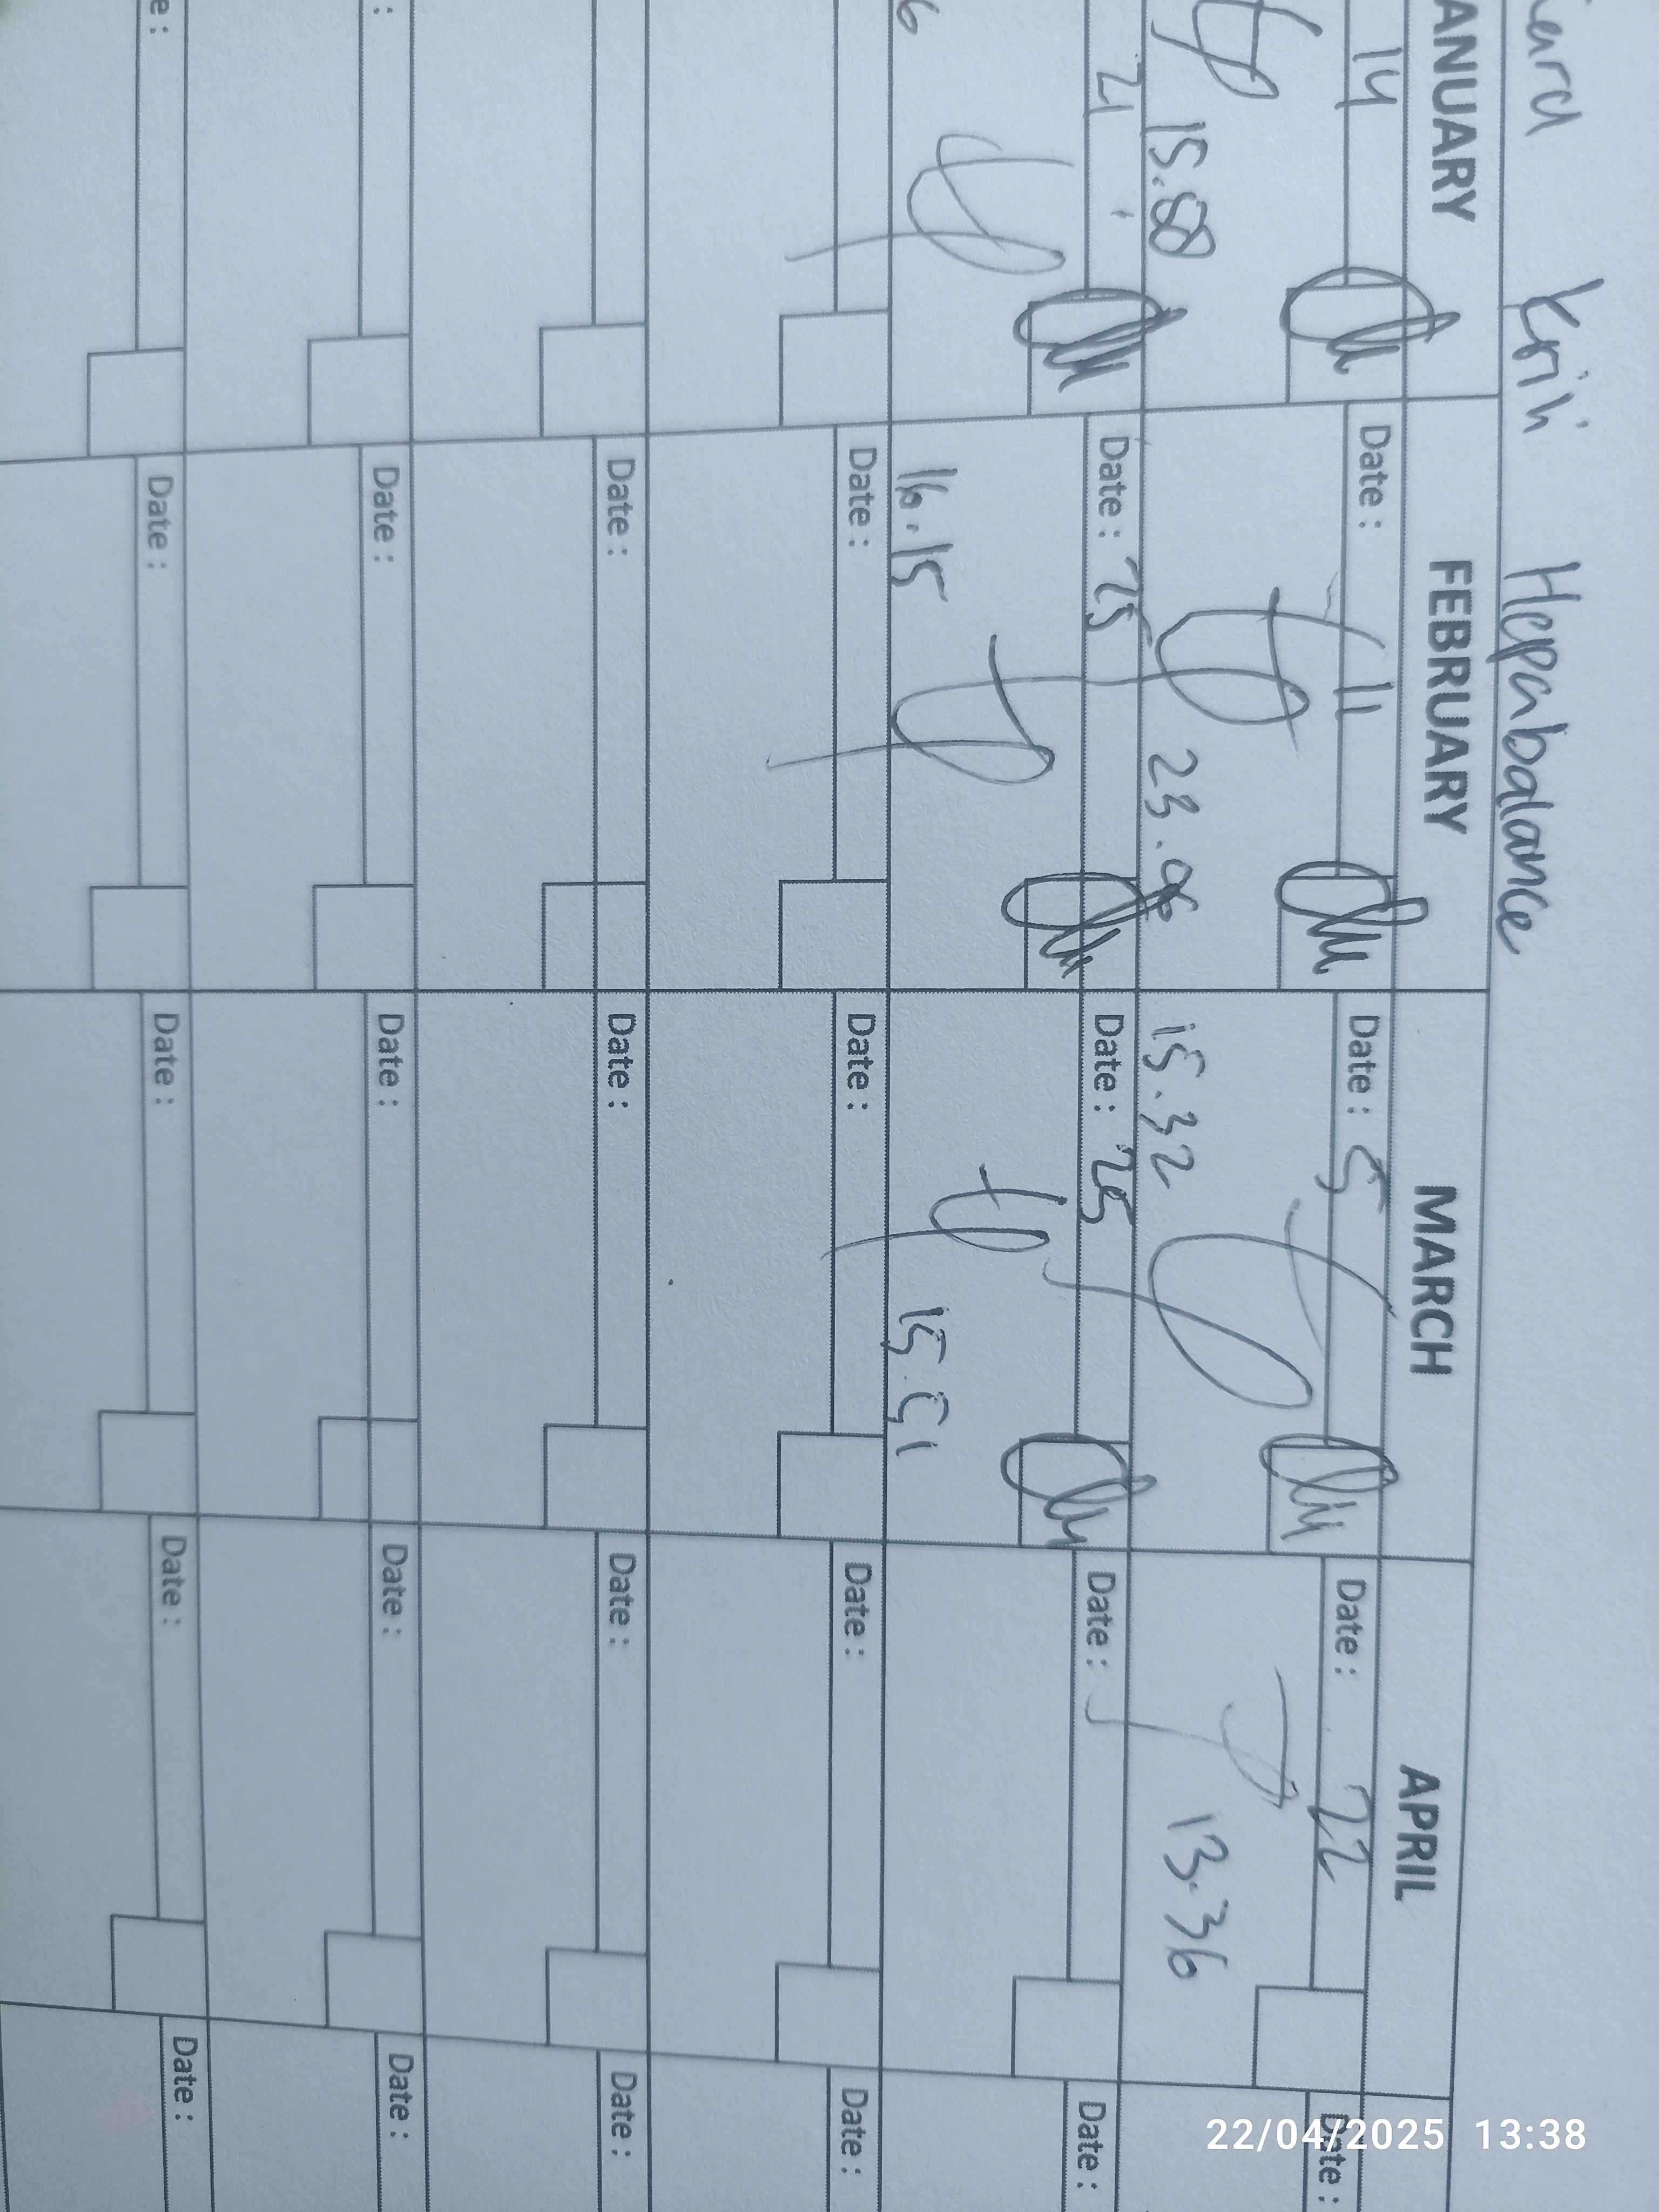 Krih Hepanbalance
JANUARY FEBRUARY MARCH APRIL
14 Date : 11 Date : 5 Date : 22 Date :
15.58 23.06 15.32 13.36
21 Date : 25 Date : 25 Date : Date :
16.15 15.51
Date : Date : Date : Date :
Date : Date : Date : Date :
Date : Date : Date : Date :
Date : Date : Date : Date :
22/04/2025 13:38